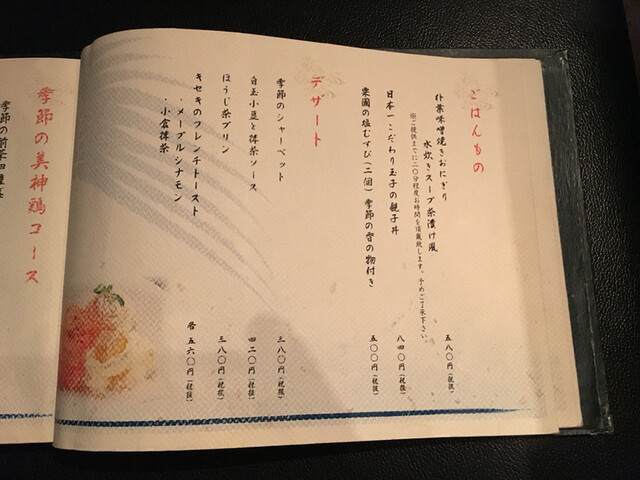 ごはんもの
朴葉味噌焼きおにぎり
水炊きスープ茶漬け風
五八〇円(税抜)
※ご提供までに二〇分程度お時間を頂戴致します。予めご了承下さい。
日本一こだわり玉子の親子丼
八四〇円(税抜)
栗國の塩むすび(二個)季節の香の物付き
五〇〇円(税抜)
デザート
季節のシャーベット
三八〇円(税抜)
白玉小豆と抹茶ソース
四二〇円(税抜)
ほうじ茶プリン
三八〇円(税抜)
キセキのフレンチトースト
・メープルシナモン
・小倉抹茶
各五六〇円(税抜)
季節の美神鶏コース
季節の前菜四種